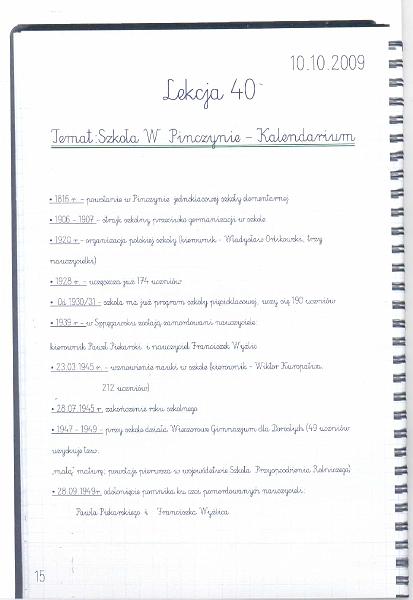 10.10.2009
Lekcja 40
Temat: Szkoła W Pinczynie - Kalendarium
• 1816 r. - powstanie w Pinczynie jednoklasowej szkoły elementarnej
• 1906 - 1907 - strajk szkolny przeciwko germanizacji w szkole
• 1920 r. - organizacja polskiej szkoły (kierownik - Władysław trzy
nauczycielki)
• 1928 r. - uczęszcza już 174 uczniów
• Od 1930/31 - szkoła ma już program szkoły pięcioklasowej, uczy się 190 uczniów
• 1939 r. - w Szpęgawsku zostają zamordowani nauczyciele:
kierownik Paweł Piekarski i nauczyciel Franciszek Wyzlic
• 23.03.1945 r. - wznowienie nauki w szkole (kierownik - Wiktor Kuropatwa,
212 uczniów)
• 28.07.1945 r. zakończenie roku szkolnego
• 1947 - 1949 - przy szkole działa Wieczorowe Gimnazjum dla Dorosłych (49 uczniów
uzyskuje tzw.
„małą" maturę; powstaje pierwsza w województwie Szkoła Przysposobienia Rolniczego)
• 28.09.1949 r. odsłonięcie pomnika ku czci pomordowanych nauczycieli:
Pawła Piekarskiego i Franciszka Wyzlica
15